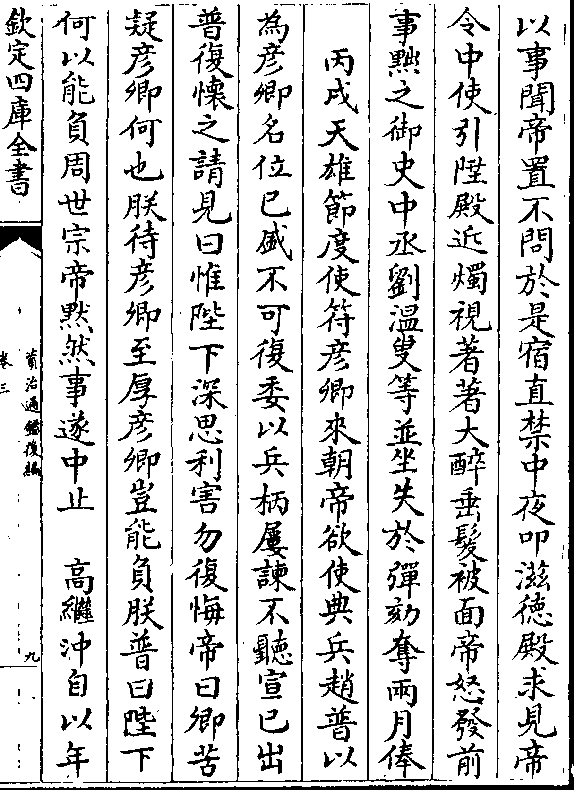 以事聞帝置不問於是宿直禁中夜叩滋德殿求見帝
令中使引陞殿近燭視著著大醉垂髮被面帝怒發前
事黜之御史中丞劉溫叟等並坐失於彈劾奪兩月俸
丙戌天雄節度使符彥卿來朝帝欲使典兵趙普以
為彥卿名位已盛不可復委以兵柄屢諫不聽宣已出
普復懷之請見曰惟陛下深思利害勿復悔帝曰卿苦
疑彥卿何也朕待彥卿至厚彥卿豈能負朕普曰陛下
何以能負周世宗帝默然事遂中止　高繼沖自以年
欽定四庫全書
資治通鑑後編
卷三
九